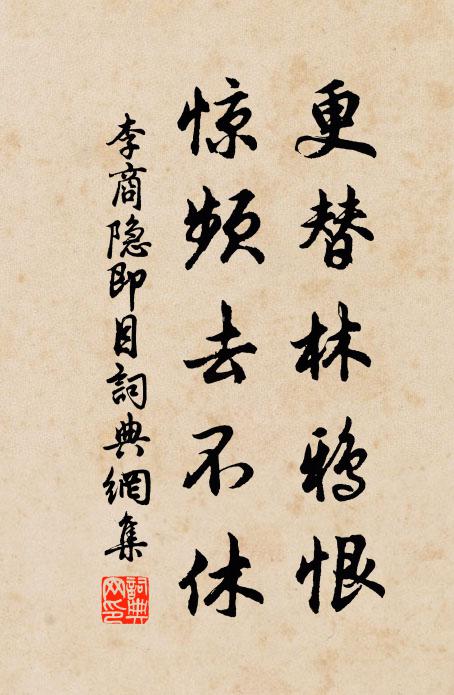 更替林鸦恨
惊频去不休
李商隐即目詞典網集
詞典
网印